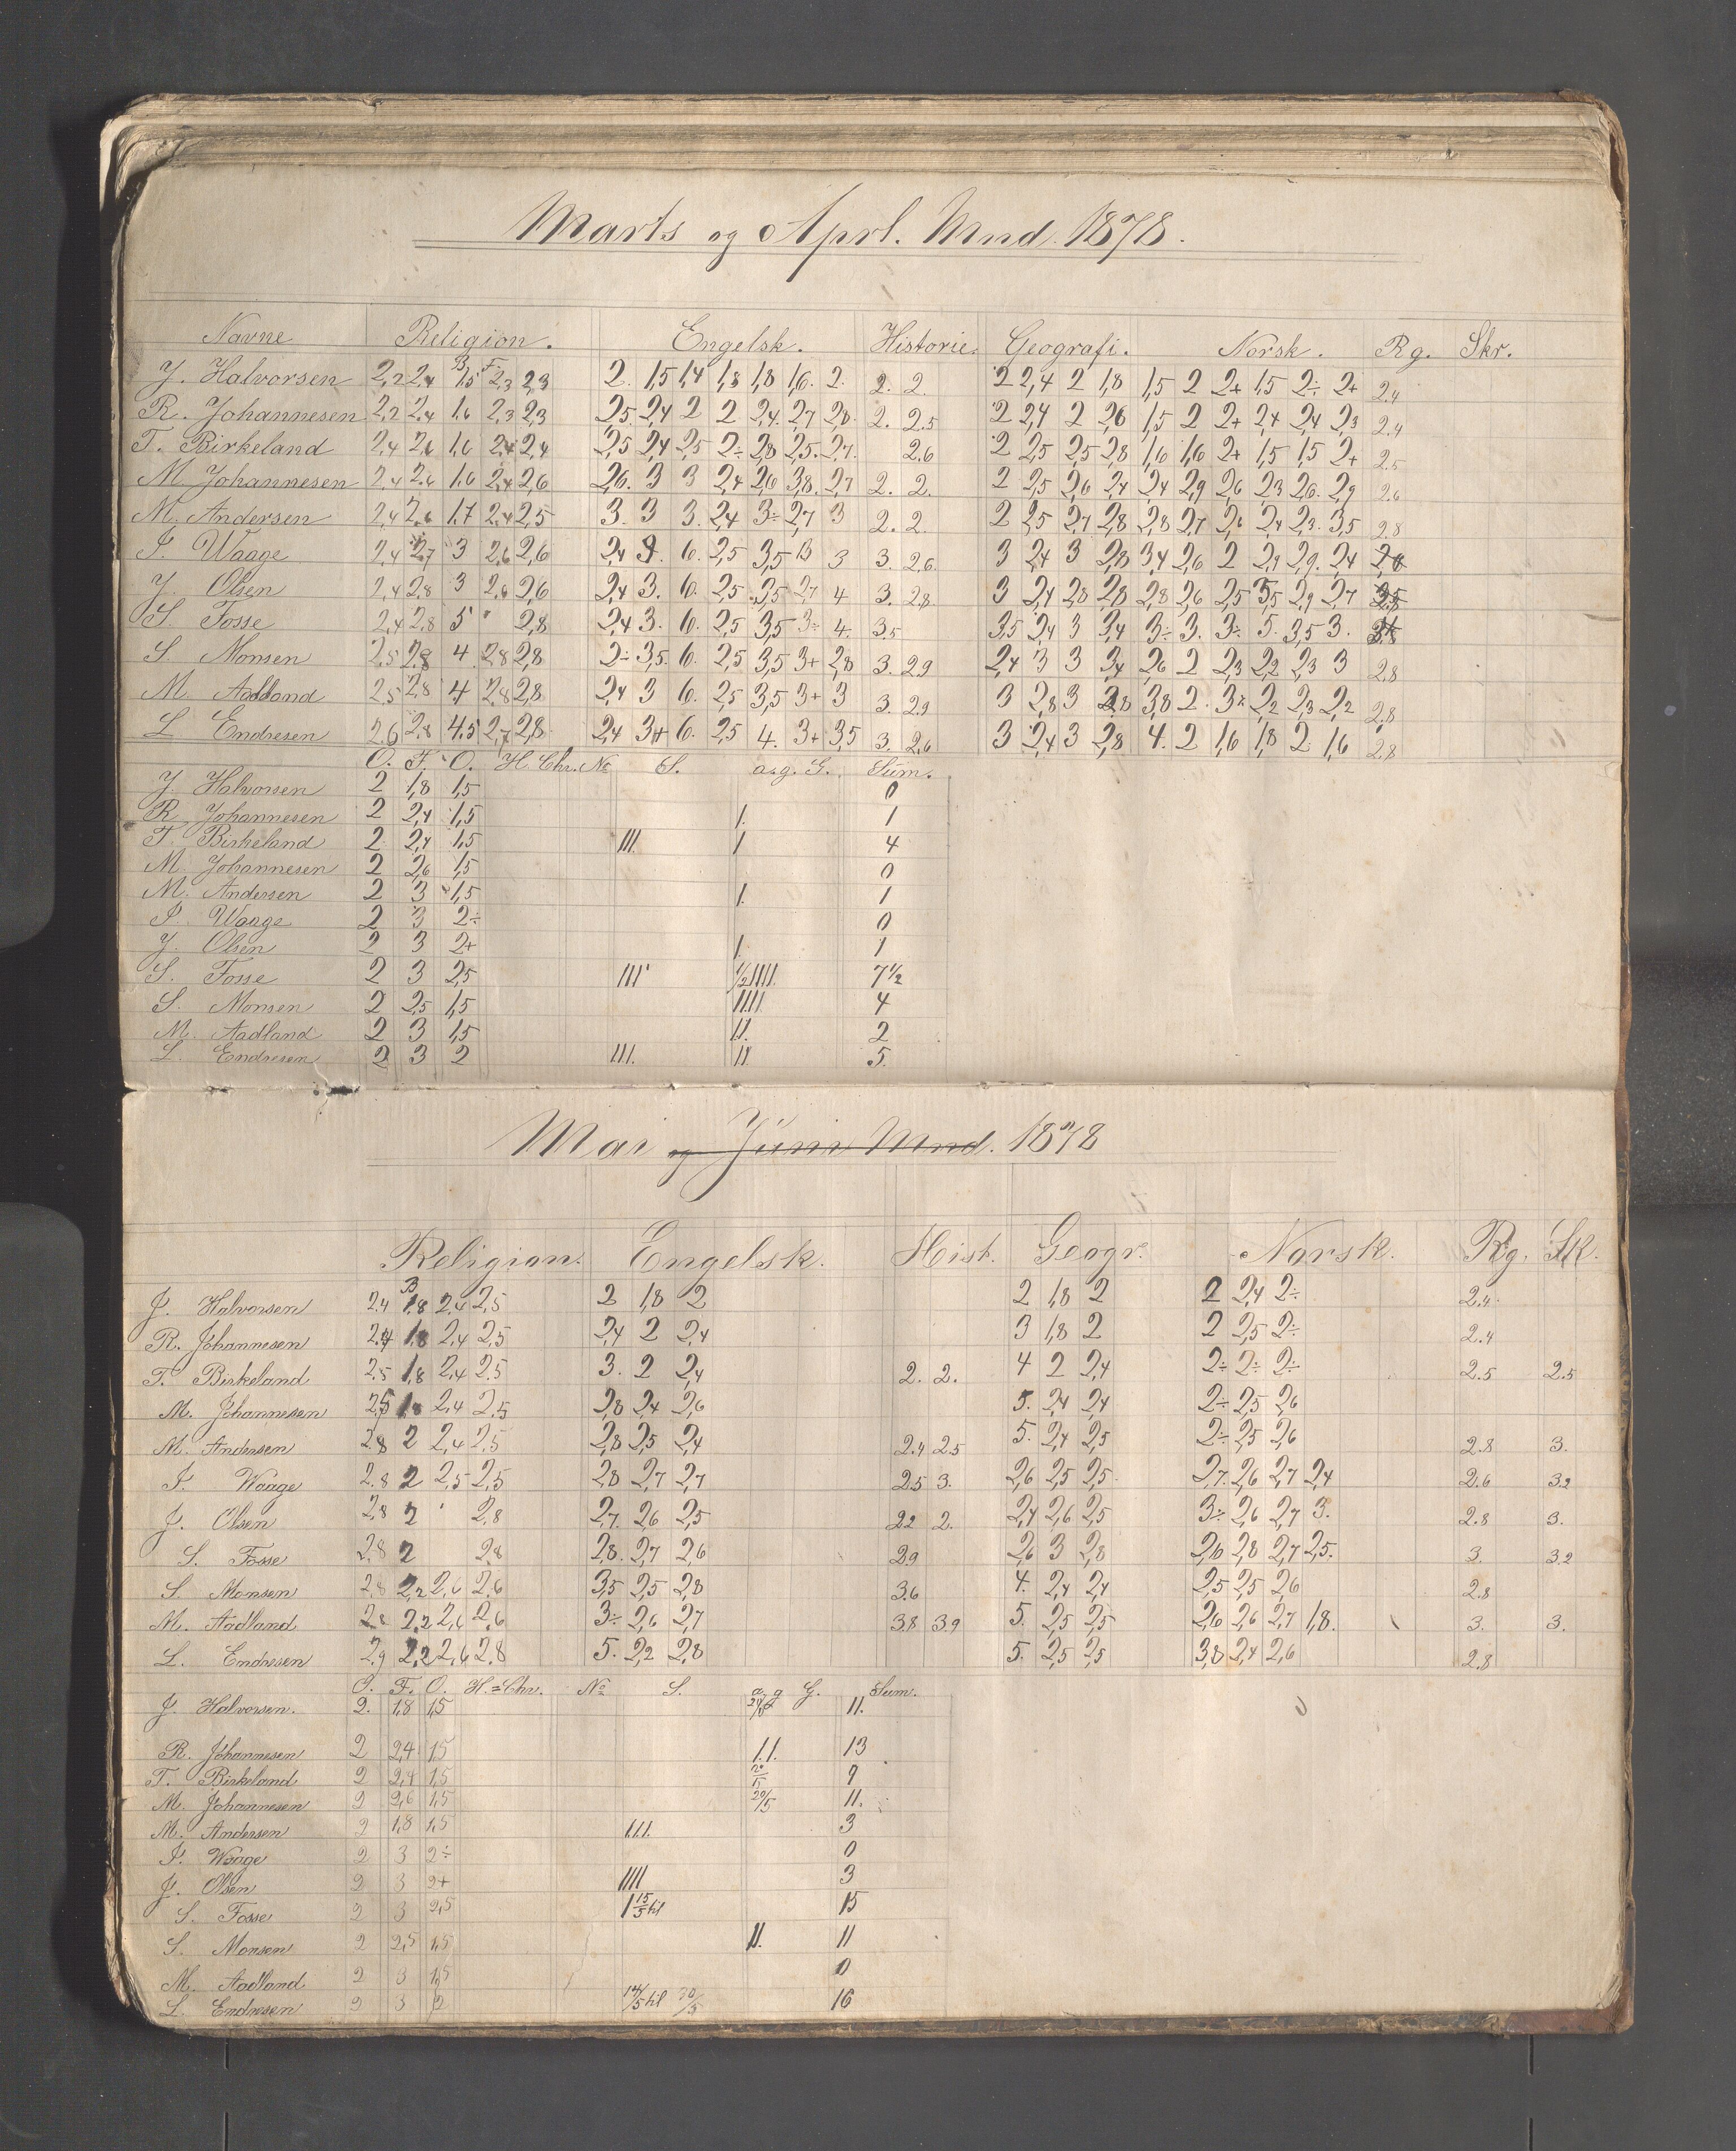 Marts og Aprl. Mnd. 1878.
Navne Religion. Engelsk. Historie. Geografi. Norsk. Rg. Skr.
B. F.
J. Halvorsen 2,2 2,4 1,5 2,3 2,3 2. 1,5 1,4 1,8 1,8 1,6. 2. 2. 2. 2 2,4 2 1,8 1,5 2 2+ 1,5 2÷ 2+ 2.4
R. Johannesen 2,2 2,4 1,6 2,3 2,3 2,5. 2,4 2 2 2,4. 2,7 2,8. 2. 2.5 2 2,4 2 2,6 1,5 2 2+ 2,4 2,4 2,3 2.4
T. Birkeland 2,4 2,6 1,6 2,4 2,4 2,5 2,4 2,5 2÷ 2,8 2,5. 2,7. 2.6 2 2,5 2,5 2,8 1,6 1,6 2+ 1,5 1,5 2+ 2.5
M. Johannesen 2,4 2,6 1,6 2,4 2,6 2,6. 3 3 2,4 2,6 3,8. 2,7 2. 2. 2 2,5 2,6 2,4 2,4 2,9 2,6 2,3 2,6. 2,9 2.6
M. Andersen 2,4 2,6 1,7 2,4 2,5 3. 3 3. 2,4 3÷ 2,7 3 2. 2. 2 2,5 2,7 2,8 2,8 2,7 2,6 2,4 2,3. 3,5 2.8
J. Waage 2,4 2,7 3 2,6 2,6 2,4 6. 2,5 3,5 3 3. 2.6. 3 2,4 3 2,8 3,4 2,6 2 2,9 2,9. 2,4
J. Olsen 2,4 2,8 3 2,6 2,6 2,4 3. 6. 2,5 3,5 2,7 4 3. 2.8. 3 2,4 2,8 2,8 2,8 2,6 2,5 3,5 2,9 2,7
S. Fosse 2,4 2,8 5 " 2,8 2,4 3. 6. 2,5 3,5 3÷ 4. 3.5 3,5 2,4 3 3,4 3÷ 3. 3÷ 5. 3,5 3.
S. Monsen 2,5 2,8 4 2,8 2,8 2÷ 3,5. 6. 2,5 3,5 3+ 2,8 3. 2.9 2,4 3 3 3,4 2,6 2 2,3 2,2 2,3 3 2.8
M. Aadland 2,5 2,8 4 2,8 2,8 2,4 3 6. 2,5 3,5 3+ 3 3. 2.9 3 2,8 3 2,8 3,8 2. 3÷ 2,2 2,3 2,2 2.8
L. Endresen 2,6 2,8 4,5 2,7 2,8. 2,4 3+ 6. 2,5 4. 3+ 3,5 3. 2.6 3 2,4 3 2,8 4. 2 1,6 1,8 2 1,6 2.8
O. F. O. H. Chr. No S. a. g. G. Sum.
J. Halvorsen 2 1,8 1,5 0
R. Johannesen 2 2,4 1,5 1. 1
T. Birkeland 2 2,4 1,5 111. 1 4
M. Johannesen 2 2,6 1,5 0
M. Andersen 2 3 1,5 1. 1
J. Waage 2 3 2÷ 0
J. Olsen 2 3 2+ 1. 1
S. Fosse 2 3 2,5 111 1/2 1111. 7 1/2
S. Monsen 2 2,5 1,5 1111. 4
M. Aadland 2 3 1,5 11. 2
L. Endresen 2 3 2 111. 11. 5.
Mai og Juni Mnd. 1878
Religion. Engelsk. Hist. Geogr. Norsk. Rg. Sk.
B
J. Halvorsen 2,4 1,8 2,4 2,5 2 1,8 2 2 1,8 2 2 2,4 2÷ 2.4.
R. Johannesen 2,4 1,8 2,4 2,5 2,4 2 2,4 3 1,8 2 2 2,5 2÷ 2.4
T. Birkeland 2,5 1,8 2,4 2,5 3. 2 2,4 2. 2. 4 2 2,4 2÷ 2÷ 2÷ 2.5 2.5
M. Johannesen 2,5 1,8 2,4 2,5 2,8 2,4 2,6 5. 2,4 2,4 2÷ 2,5 2,6
M. Andersen 2,8 2 2,4 2,5 2,8 2,5 2,4 2.4 2.5 5. 2,4 2,5 2÷ 2,5 2,6 2.8 3.
J. Waage 2,8 2 2,5 2,5 2,8 2,7 2,7 2.5 3. 2,6 2,5 2,5. 2,7. 2,6 2,7 2,4 2.6 3.2
J. Olsen 2,8 2 2,8 2,7. 2,6 2,5 2.2 2. 2,4 2,6 2,5 3÷ 2,6 2,7 3. 2.8 3.
S. Fosse 2,8 2 2,8 2,8. 2,7 2,6 2.9 2,6 3 2,8 2,6 2,8 2,7 2,5. 3. 3.2
S. Monsen 2,8 2,2 2,6 2,6 3,5 2,5 2,8 3.6 4. 2,4 2,4 2,5 2,5 2,6 2.8
M. Aadland 2,8 2,2 2,6 2,6 3÷ 2,6 2,7 3.8 3.9 5. 2,5 2,5 2,6 2,6 2,7 1,8. 3. 3.
L. Endresen 2,9 2,2 2,6 2,8 5. 2,2 2,8 5. 2,5 2,5 3,8 2,4 2,6 2.8
O. F. O. H. = Chr. No S. a. g G. Sum.
J. Halvorsen. 2. 1,8 1,5 11.
R. Johannesen 2 2,4 1,5 1.1. 13
T. Birkeland 2 2,4 1,5 9
M. Johannesen 2 2,6 1,5 20/5 11.
M. Andersen 2 1,8 1,5 1.1.1. 3
J. Waage 2 3 2÷ 0
J. Olsen 2 3 2+ 1111 3
S. Fosse 2 3 2,5 1 15/5 til 15
S. Monsen 2 2,5 1,5 11. 11
M. Aadland 2 3 1,5 0
L. Endresen 2 3 2 14/5 til 30/5 16